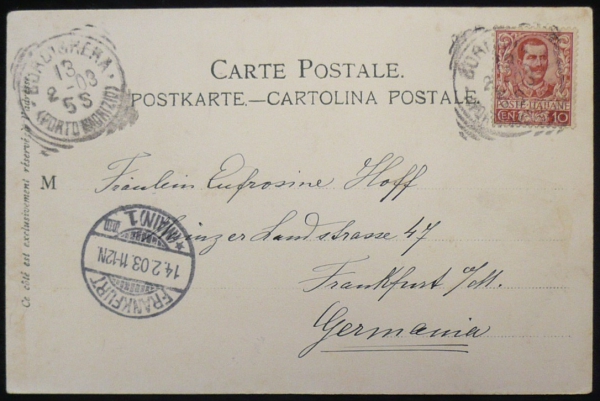 CARTE POSTALE.
POSTKARTE.—CARTOLINA POSTALE.
BORDIGHERA
13
2-03
5S
(PORTO MAURIZIO)
POSTE ITALIANE
CEN 10
Ce côté est exclusivement réservé à
M
Fräulein Eufrosine Hoff
Landstrasse 47
Frankfurt a/M.
Germania
FRANKFURT
(MAIN) 1
14.2.03.11-12N.